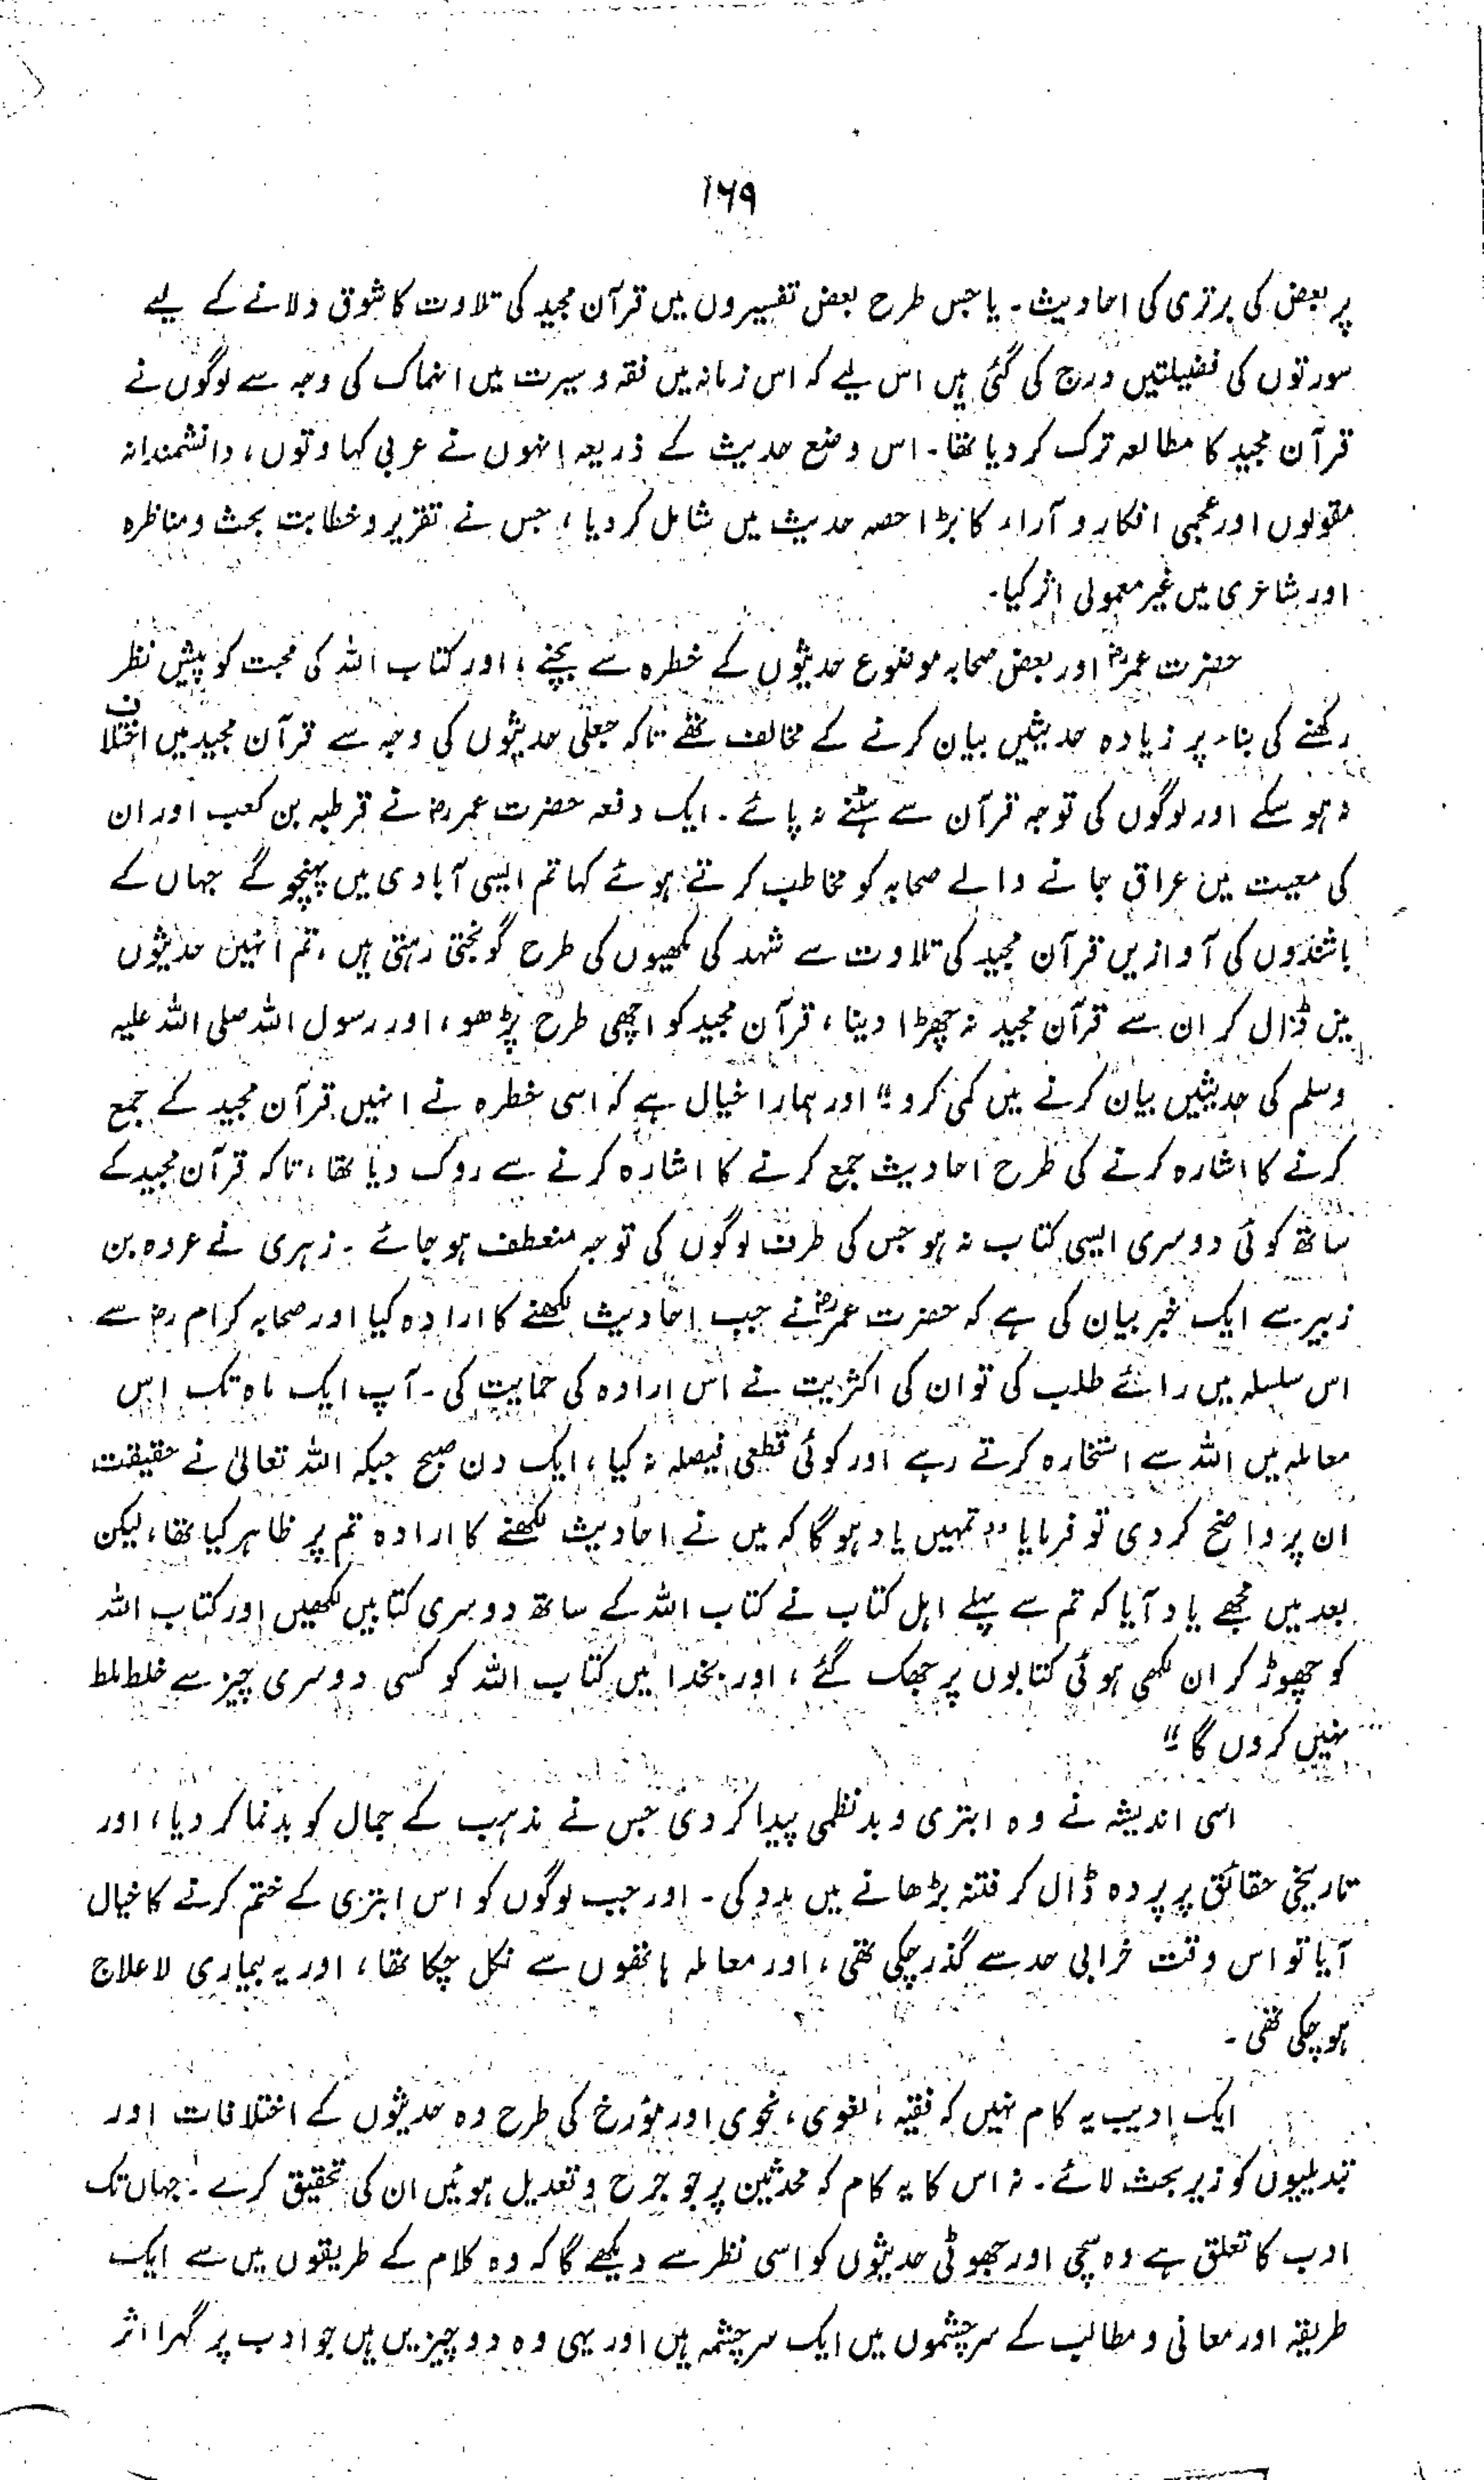 ۱۶۹
پر بعض کی برتری کی احادیث۔ یا جس طرح بعض تفسیروں میں قرآن مجید کی تلاوت کا شوق دلانے کے لیے
سورتوں کی فضیلتیں درج کی گئی ہیں اس لیے کہ اس زمانہ میں فقہ و سیرت میں انہماک کی وجہ سے لوگوں نے
قرآن مجید کا مطالعہ ترک کر دیا تھا۔ اس وضع حدیث کے ذریعہ انہوں نے عربی کہاوتوں، دانشمندانہ
مقولوں اور عجمی افکار و آراء کا بڑا حصہ حدیث میں شامل کر دیا، جس نے تقریر و خطابت بحث و مناظرہ
اور شاعری میں غیر معمولی اثر کیا۔
حضرت عمرؓ اور بعض صحابہ موضوع حدیثوں کے خطرہ سے بچنے، اور کتاب اللہ کی محبت کو پیش نظر
رکھنے کی بناء پر زیادہ حدیثیں بیان کرنے کے مخالف تھے تاکہ جعلی حدیثوں کی وجہ سے قرآن مجید میں اختلاف
نہ ہو سکے اور لوگوں کی توجہ قرآن سے ہٹنے نہ پائے۔ ایک دفعہ حضرت عمر رضؓ نے قرظہ بن کعب اور ان
کی معیت میں عراق جانے والے صحابہ کو مخاطب کرتے ہوئے کہا تم ایسی آبادی میں پہنچو گے جہاں کے
باشندوں کی آوازیں قرآن مجید کی تلاوت سے شہد کی مکھیوں کی طرح گونجتی رہتی ہیں، تم انہیں حدیثوں
میں ڈال کر ان سے قرآن مجید نہ چھڑا دینا، قرآن مجید کو اچھی طرح پڑھو، اور رسول اللہ صلی اللہ علیہ
وسلم کی حدیثیں بیان کرنے میں کمی کرو" اور ہمارا خیال ہے کہ اسی خطرہ نے انہیں قرآن مجید کے جمع
کرنے کا اشارہ کرنے کی طرح احادیث جمع کرنے کا اشارہ کرنے سے روک دیا تھا، تاکہ قرآن مجید کے
ساتھ کوئی دوسری ایسی کتاب نہ ہو جس کی طرف لوگوں کی توجہ منعطف ہو جائے۔ زہری نے عروہ بن
زبیر سے ایک خبر بیان کی ہے کہ حضرت عمرؓ نے جب احادیث لکھنے کا ارادہ کیا اور صحابہ کرام رضؓ سے
اس سلسلہ میں رائے طلب کی تو ان کی اکثریت نے اس ارادہ کی حمایت کی۔ آپ ایک ماہ تک اس
معاملہ میں اللہ سے استخارہ کرتے رہے اور کوئی قطعی فیصلہ نہ کیا، ایک دن صبح جبکہ اللہ تعالیٰ نے حقیقت
ان پر واضح کر دی تو فرمایا "تمہیں یاد ہو گا کہ میں نے احادیث لکھنے کا ارادہ تم پر ظاہر کیا تھا، لیکن
بعد میں مجھے یاد آیا کہ تم سے پہلے اہل کتاب نے کتاب اللہ کے ساتھ دوسری کتابیں لکھیں اور کتاب اللہ
کو چھوڑ کر ان لکھی ہوئی کتابوں پر جھک گئے، اور بخدا میں کتاب اللہ کو کسی دوسری چیز سے خلط ملط
نہیں کروں گا"
اسی اندیشہ نے وہ ابتری و بدنظمی پیدا کر دی جس نے مذہب کے جمال کو بدنما کر دیا، اور
تاریخی حقائق پر پردہ ڈال کر فتنہ بڑھانے میں مدد کی۔ اور جب لوگوں کو اس ابتری کے ختم کرنے کا خیال
آیا تو اس وقت خرابی حد سے گذر چکی تھی، اور معاملہ ہاتھوں سے نکل چکا تھا، اور یہ بیماری لاعلاج
ہو چکی تھی۔
ایک ادیب یہ کام نہیں کہ فقیہ، لغوی، نحوی اور مؤرخ کی طرح وہ حدیثوں کے اختلافات اور
تبدیلیوں کو زیر بحث لائے۔ نہ اس کا یہ کام کہ محدثین پر جو جرح و تعدیل ہوئیں ان کی تحقیق کرے۔ جہاں تک
ادب کا تعلق ہے وہ سچی اور جھوٹی حدیثوں کو اسی نظر سے دیکھے گا کہ وہ کلام کے طریقوں میں سے ایک
طریقہ اور معانی و مطالب کے سرچشموں میں ایک سرچشمہ ہیں اور یہی وہ دو چیزیں ہیں جو ادب پر گہرا اثر